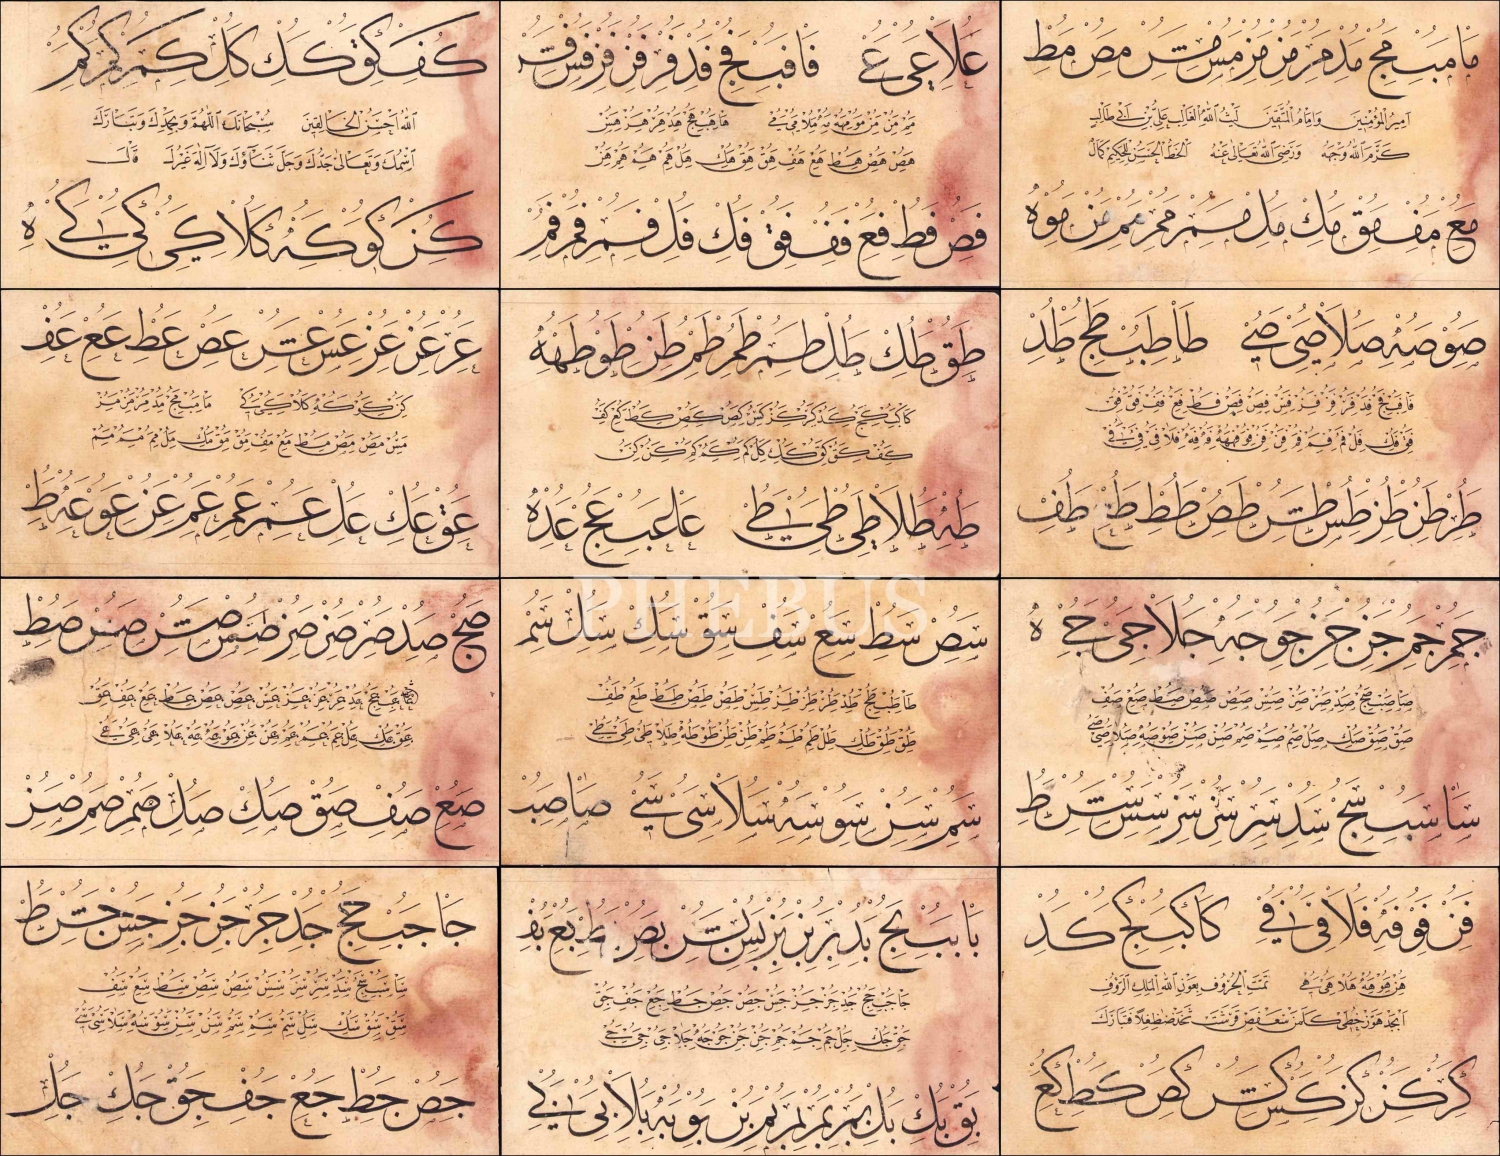 ما مب مج مد مر من مز مس مش مص مط
امير المؤمنين وامام المتقين ليث الله الغالب علي بن ابي طالب
كرم الله وجهه ورضى الله تعالى عنه الخط الحسن للحكيم كمال
مع مف مق مك مل مم مم مم من مو مه
علا عى عے فا فب فج فد فر فن فز فس فش
مم من مز مو مه مه ملا مى مے ها هب هج هد هر هز هس
هص هض هط هع هف هق هو هك هل هم هه هم هز
فص فط فع فف فق فك فل فم فم فم
كف كو كك كل كم كم كم
الله احسن الخالقين سبحانك اللهم وبحمدك وتبارك
اسمك وتعالى جدك وجل ثناؤك ولا اله غيرك قال
كن كو كه كلا كى كے
صو صه صلا صى صے طا طب طج طد
فا فب فج فد فر فز فس فص فط فع فف فق
طر طن طز طس طش طص طط طع طف
طق طك طل طم طم طم طن طو طه
كا كب كج كد كر كز كس كص كط كع كف
كف كق كو كك كل كم كم كم كن كن
طه طلا طى طے عا عب عج عد
عر عن عز عس عش عص عط عع عف
كن كو كه كلا كى كے ما مب مج مد مر مز من مز
مس مص مط مع مف مق مك مل مم مم مم
عق عك عل عم عم عم عن عو عه
جم جم جن جز جو جه جلا جى جے
صا صب صج صد صر صز صس صص صط صع صف
صق صك صل صم صم صم صن صز صو صه صلا صى صے
سا سب سج سد سر سن سز سس سش
سص سط سع سف سق سك سل سم
PHEBUS
طا طب طج طد طر طز طس طص طط طع طف
طق طك طل طم طم طم طن طز طو طه طلا طى طے
سم سن سو سه سلا سى سے صا صب
صج صد صر صن صز صس صش صص صط
عا عب عج عد عر عز عس عص عط عع عف عق
عق عك عل عم عم عم عن عز عو عه علا عى عے
صع صف صق صك صل صم صم صن
فن فو فه فلا فى فے كا كب كج كد
هز هو هه هلا هى هے تمت الحروف بعون الله الملك الرؤف
ابجد هوز حطى كلمن سعفص قرشت ثخذ ضظغلا
كر كن كز كس كش كص كط كع
با بب بج بد بر بن بز بس بش بص بط بع بف
جا جب جج جد جر جز جس جص جط جع جف جق
جق جك جل جم جم جم جن جز جو جه جلا جى جے
بق بك بل بم بم بم بن بو به بلا بى بے
جا جب جج جد جر جن جز جس جش
سا سب سج سد سر سز سس سص سط سع سف
سق سك سل سم سم سم سن سز سو سه سلا سى سے
جص جط جع جف جق جك جل